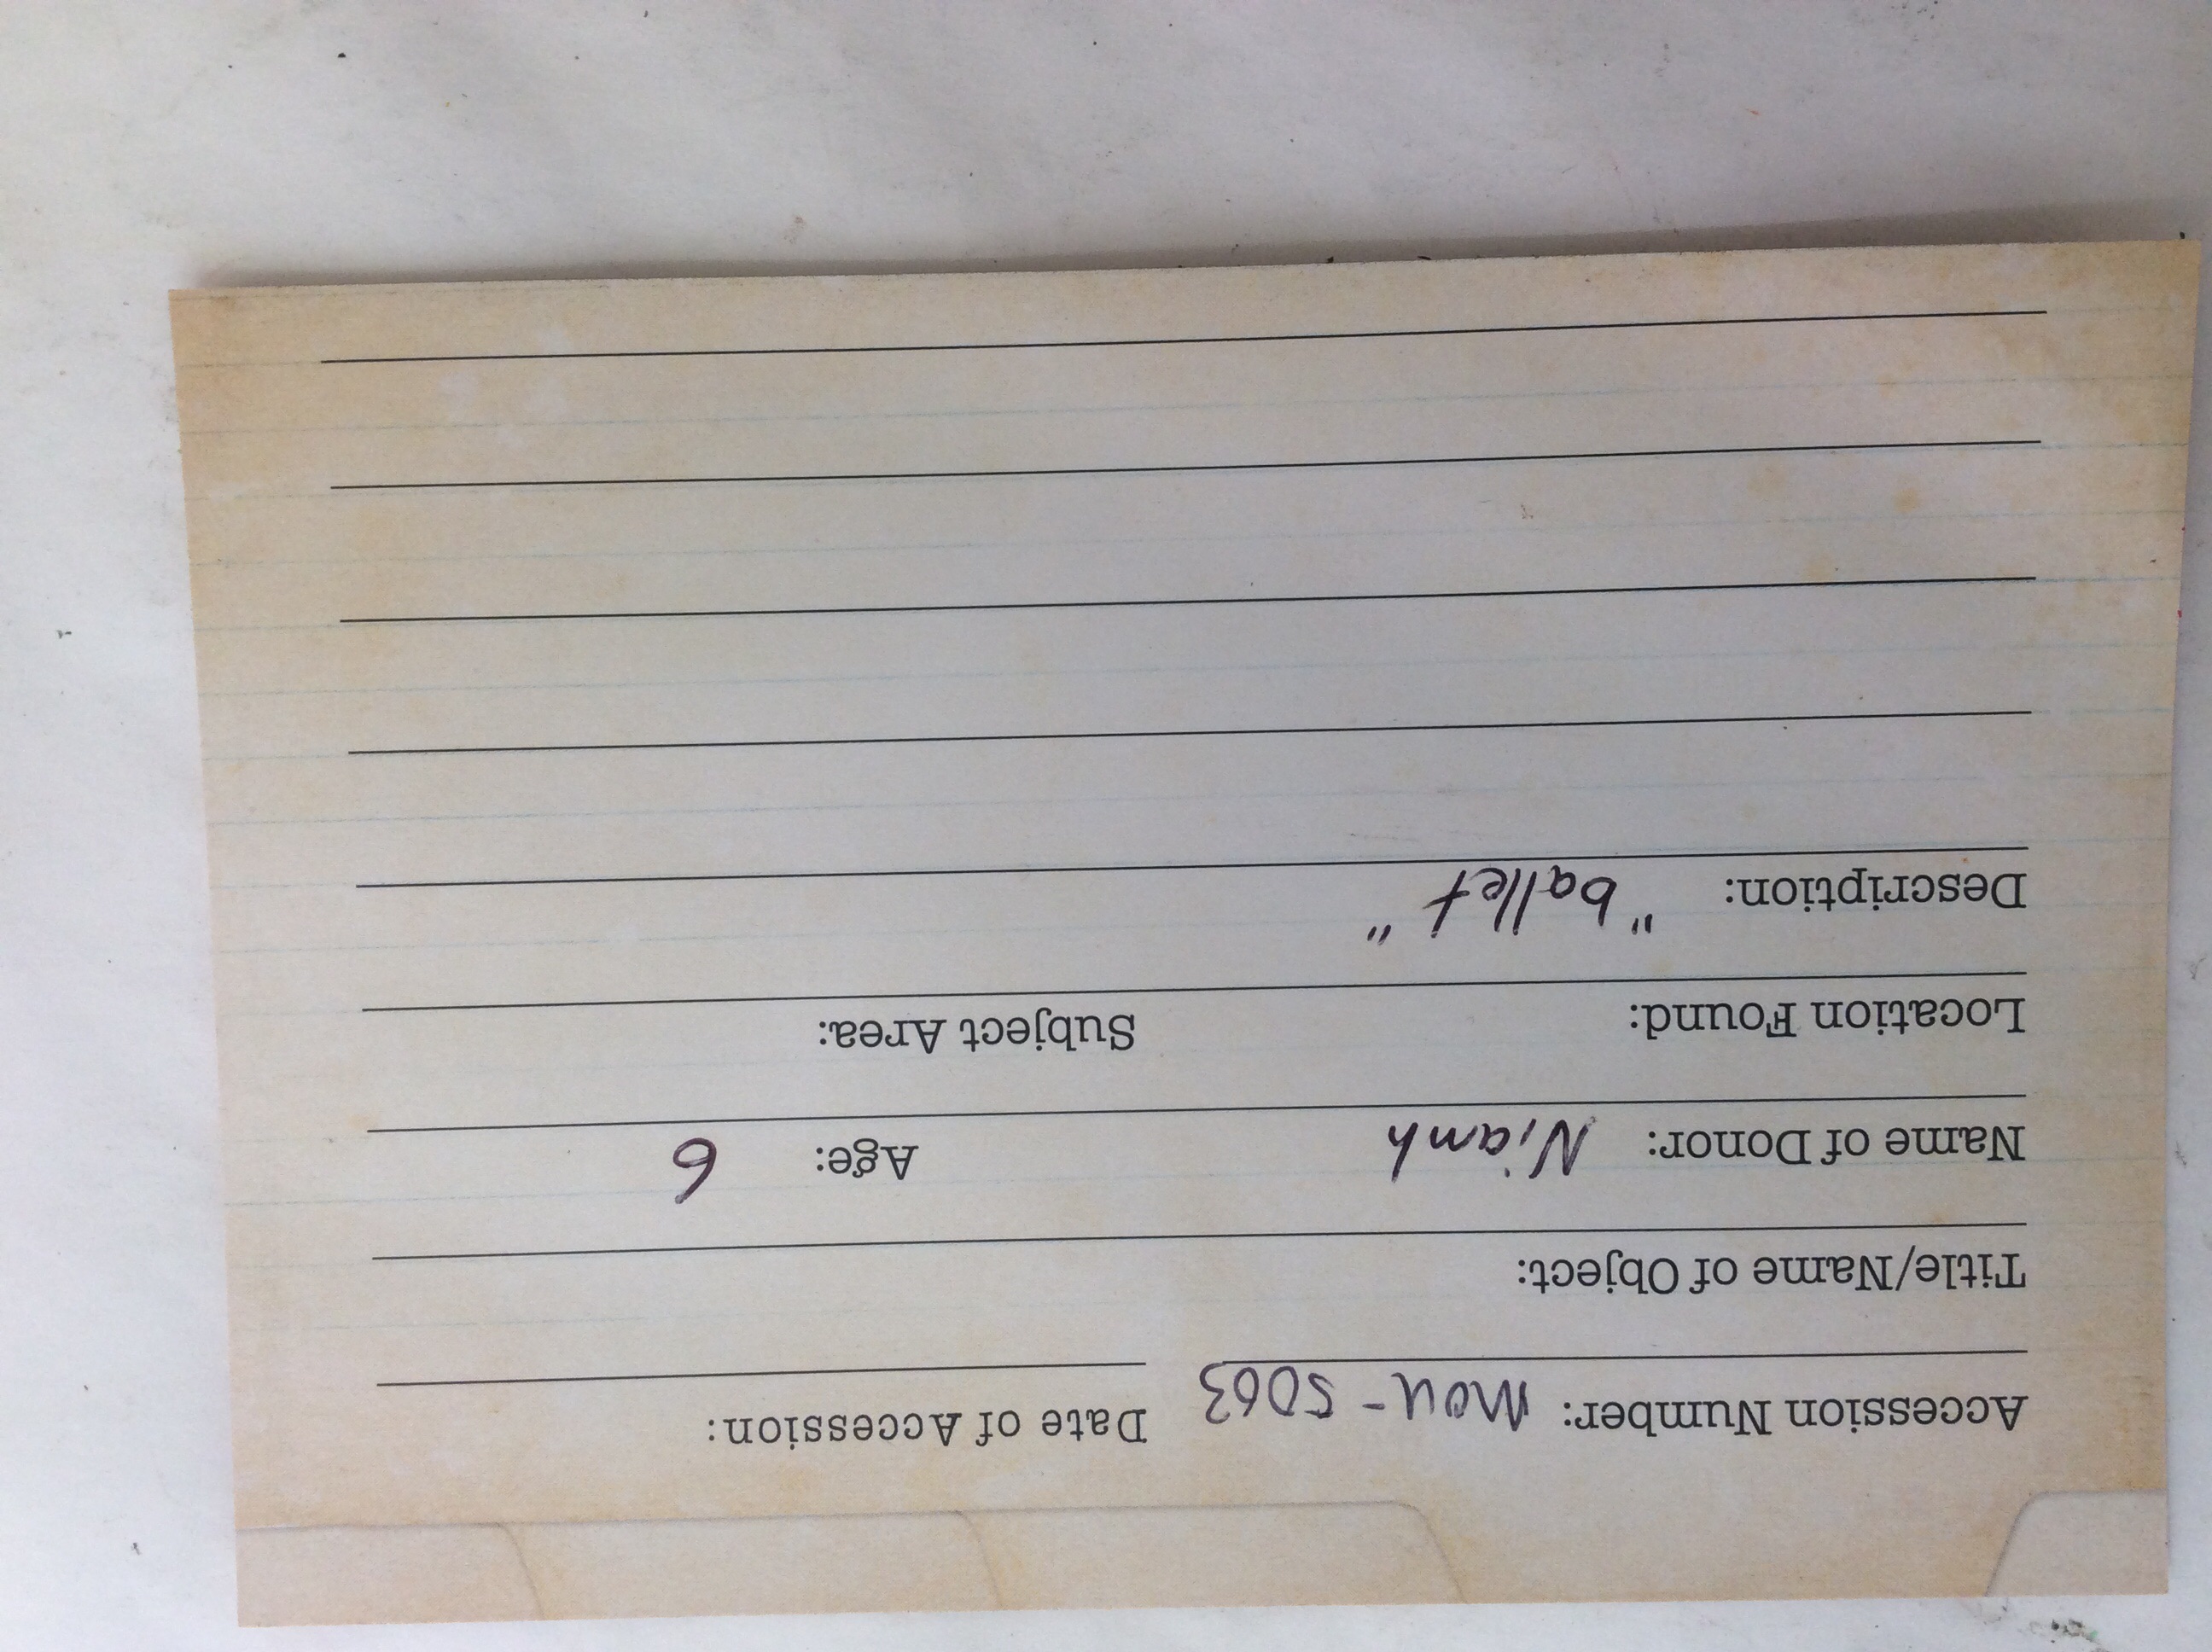 Accession Number: Mou-5063 Date of Accession:
Title/Name of Object:
Name of Donor: Niamh Age: 6
Location Found: Subject Area:
Description: "ballet"